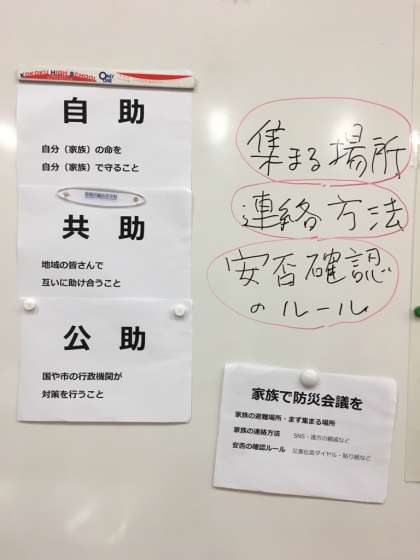 KOKOKU HIGH SCHOOL ONLY ONE
自助
自分（家族）の命を
自分（家族）で守ること
共助
地域の皆さんで
互いに助け合うこと
公助
国や市の行政機関が
対策を行うこと
集まる場所
連絡方法
安否確認
のルール
家族で防災会議を
家族の避難場所・まず集まる場所
家族の連絡方法 SNS・遠方の親戚など
安否の確認ルール 災害伝言ダイヤル・貼り紙など